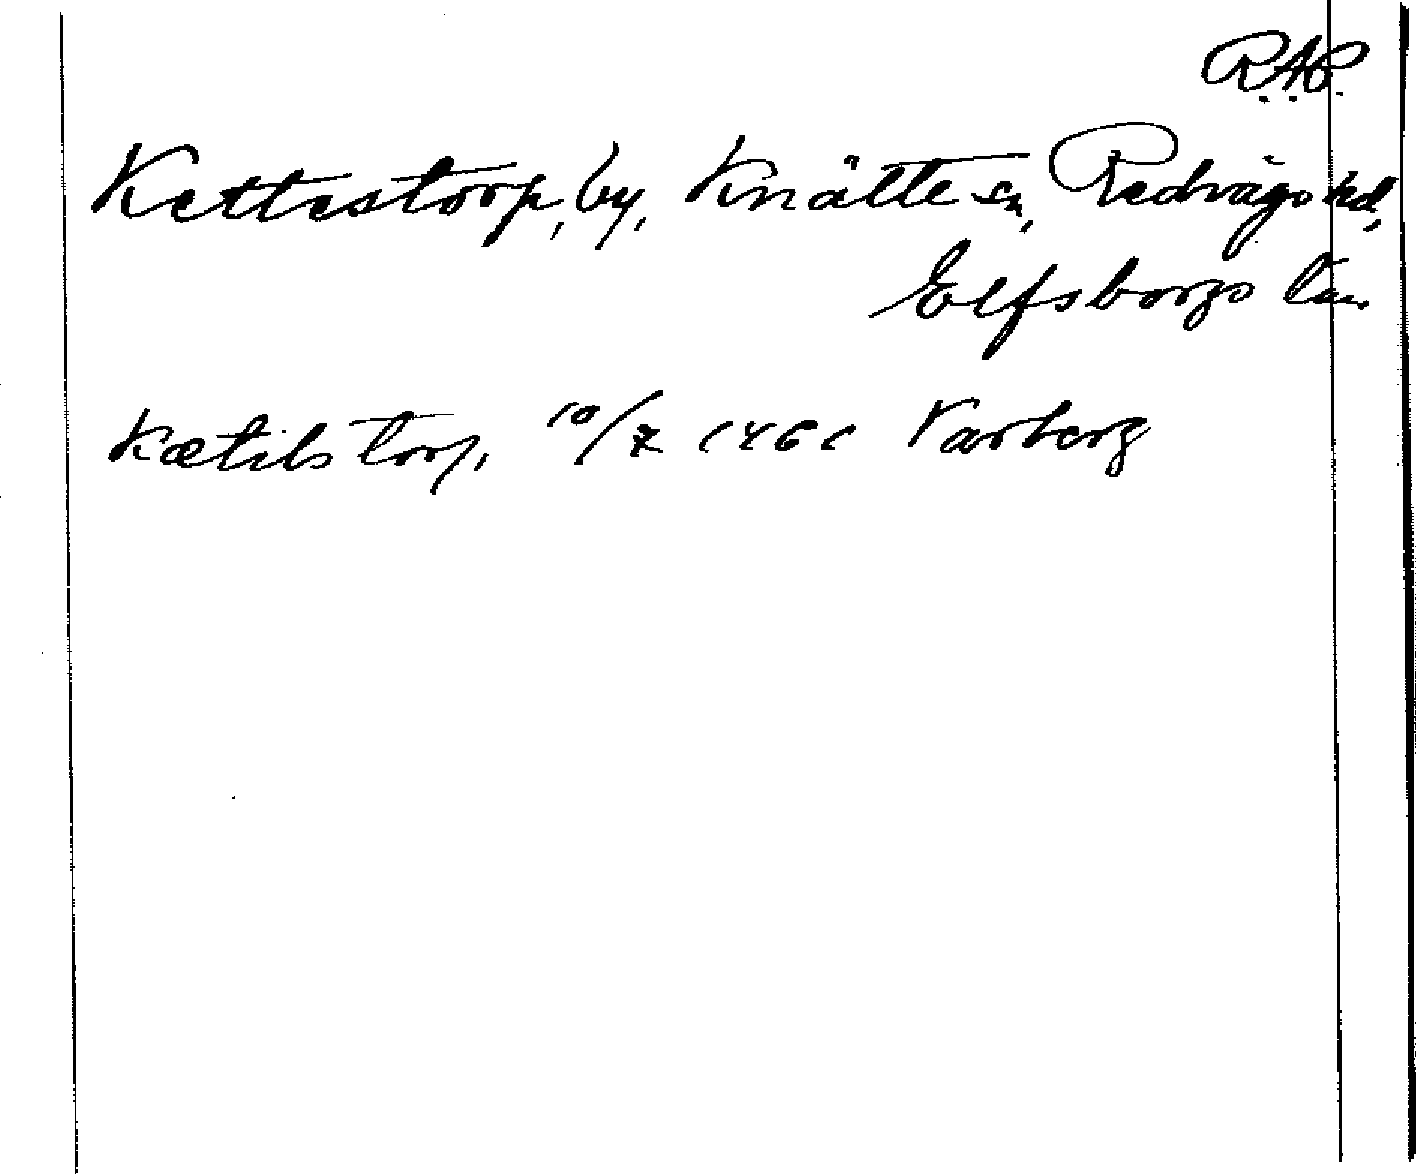 R.A.P.
Kettestorp, by, Knätte sn, Redvägs hd,
Elfsborgs län
Kætilstorp, 10/7 1461 Varberg